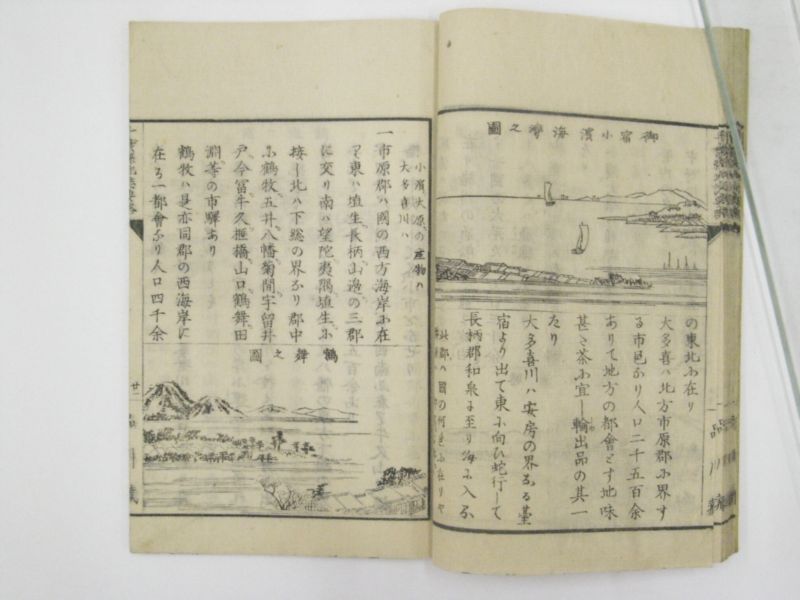 御宿小濱海灣之圖
の東北ふ在り
大多喜ハ北方市原郡ふ界す
る市邑ふり人口二千五百余
ありて地方の都會とす地味
甚さ茶ふ宜し輸出品の其一
たり
大多喜川ハ安房の界なる臺
宿より出て東ふ向ひ蛇行して
長柄郡和泉に至り海ふ入る
此郡ハ國の何邊ふ在りや
小濱大原の産物ハ
大多喜川ハ
一市原郡ハ國の西方海岸ふ在
て東ハ埴生長柄山邊の三郡
に交り南ハ望陀夷隅埴生ふ
接し北ハ下総の界なり郡中
ふ鶴牧五井八幡菊間宇留井
戸今冨牛久矩橋山口鶴舞田
淵等の市驛あり
鶴牧ハ是亦同郡の西海岸に
在る一都會なり人口四千余
鶴舞之圖
廿二